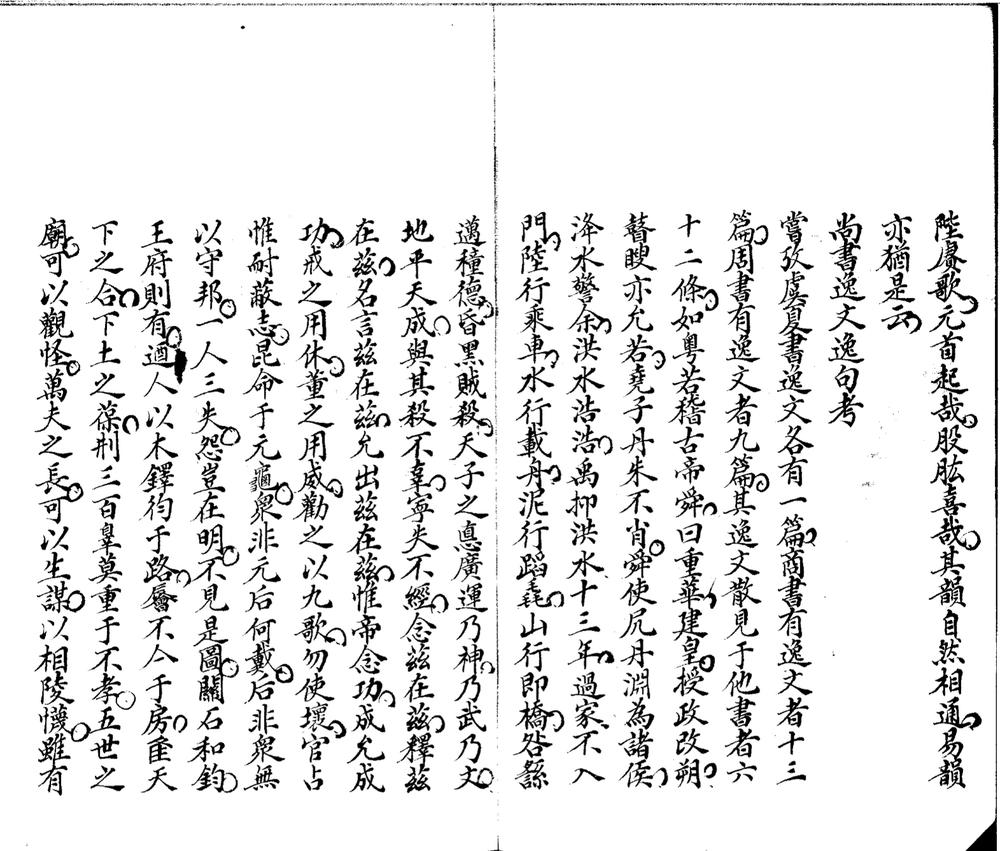 陸賡歌元首起哉股肱喜哉其韻自然相通易韻
亦猶是云
尚書逸文逸句考
嘗攷虞夏書逸文各有一篇商書有逸文者十三
篇周書有逸文者九篇其逸文散見于他書者六
十二條如粤若稽古帝舜曰重華建皇授政改朔
瞽瞍亦允若堯子丹朱不肖舜使居丹淵為諸侯
洚水警余洪水浩浩禹抑洪水十三年過家不入
門陸行乘車水行載舟泥行蹈毳山行即橋咎繇
邁種德昏黑賊殺天子之悳廣運乃神乃武乃文
地平天成與其殺不辜寧失不經念茲在茲釋茲
在茲名言茲在茲允出茲在茲惟帝念功成允成
功戒之用休董之用威勸之以九歌勿使壞官占
惟耐蔽志昆命于元龜衆非元后何戴后非衆無
以守邦一人三失怨豈在明不見是圖關石和鈞
王府則有遒人以木鐸徇于路辰不亼于房厓天
下之合下土之葆刑三百辠莫重于不孝五世之
廟可以觀怪萬夫之長可以生謀以相陵懱雖有